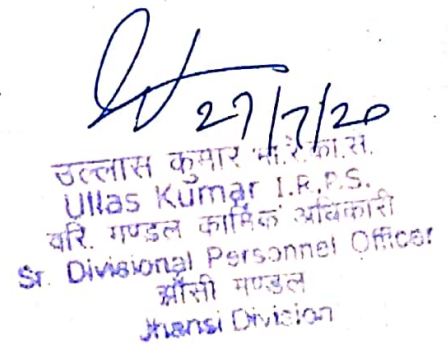 27/7/20
उल्लास कुमार भा.रे.का.से.
Ullas Kumar I.R.P.S.
वरि. मण्डल कार्मिक अधिकारी
Sr. Divisional Personnel Officer
झाँसी मण्डल
Jhansi Division